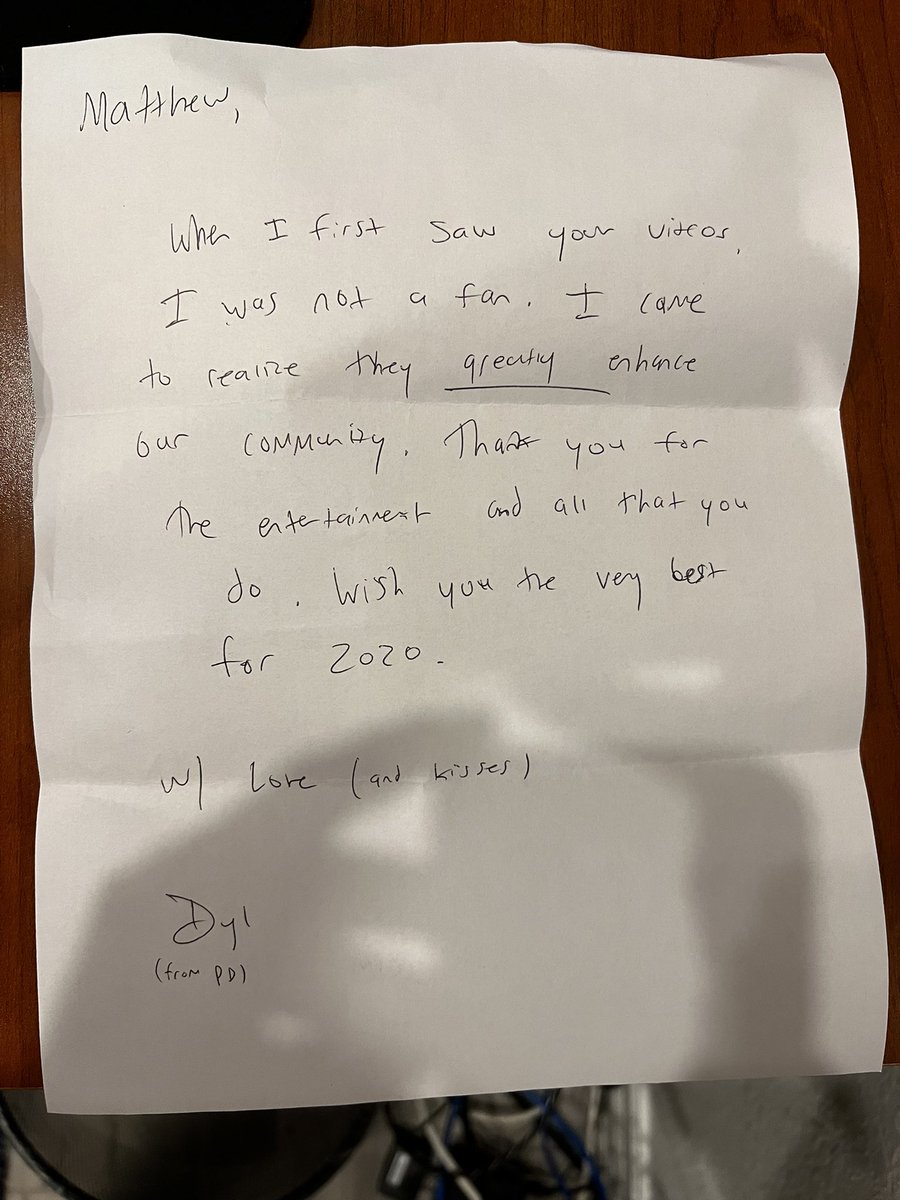 Matthew,
When I first saw your videos,
I was not a fan. I came
to realize they greatly enhance
our community. Thank you for
the entertainment and all that you
do. Wish you the very best
for 2020.
w/ Love (and kisses)
Dyl
(from PD)